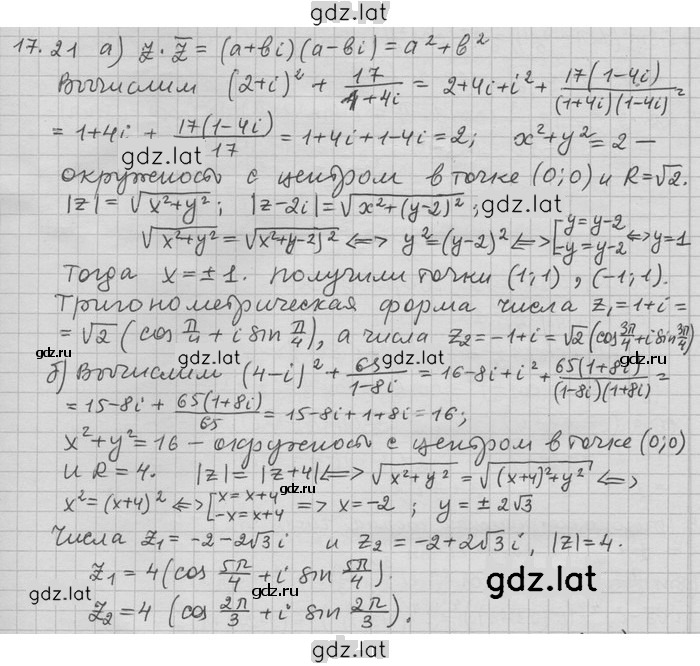 gdz.lat
17.21 а) z·z̅ = (a+bi)(a-bi) = a²+b²
Вычислим (2+i)² + 17/(1+4i) = 2+4i+i² + 17(1-4i)/((1+4i)(1-4i)) =
= 1+4i + 17(1-4i)/17 = 1+4i+1-4i = 2; x²+y² = 2 —
gdz.lat gdz.lat
окружность с центром в точке (0;0) и R=√2.
|z| = √(x²+y²); |z-2i| = √(x²+(y-2)²);
gdz.lat
√(x²+y²) = √(x²+(y-2)²) ⟺ y²=(y-2)² ⟺ [y=y-2 -y=y-2 ⟺ y=1
Тогда x=±1. получили точки (1;1), (-1;1).
gdz.lat
Тригонометрическая форма числа z₁=1+i=
= √2(cos π/4 + i sin π/4), а числа z₂=-1+i=√2(cos 3π/4 + i sin 3π/4)
gdz.lat gdz.lat gdz.lat
б) Вычислим (4-i)² + 65/(1-8i) = 16-8i+i² + 65(1+8i)/((1-8i)(1+8i)) =
= 15-8i + 65(1+8i)/65 = 15-8i+1+8i = 16;
x²+y²=16 – окружность с центром в точке (0;0)
и R=4. |z| = |z+4| ⟺ √(x²+y²) = √((x+4)²+y²) ⟺
gdz.lat
x²=(x+4)² ⟺ [x=x+4 -x=x+4 => x=-2; y=±2√3
Числа z₁=-2-2√3i и z₂=-2+2√3i, |z|=4.
z₁=4(cos 5π/4 + i sin 5π/4).
gdz.lat gdz.lat
z₂=4 (cos 2π/3 + i sin 2π/3).
gdz.lat